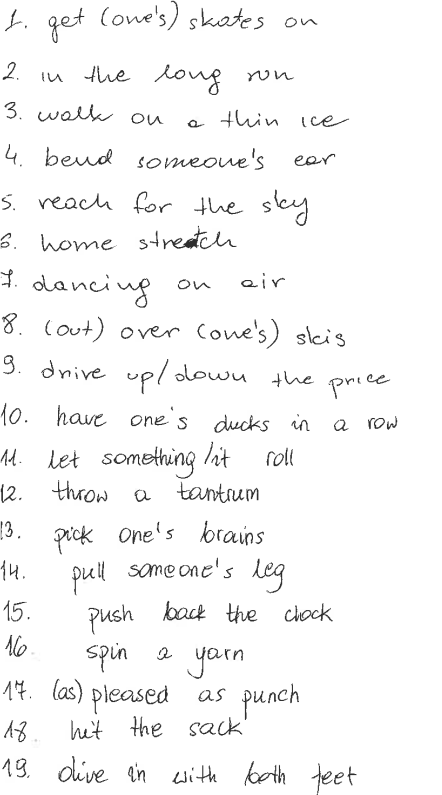 1. get (one's) skates on
2. in the long run
3. walk on a thin ice
4. bend someone's ear
5. reach for the sky
6. home stretch
7. dancing on air
8. (out) over (one's) skis
9. drive up/down the price
10. have one's ducks in a row
11. let something/it roll
12. throw a tantrum
13. pick one's brains
14. pull someone's leg
15. push back the clock
16. spin a yarn
17. (as) pleased as punch
18. hit the sack
19. dive in with both feet